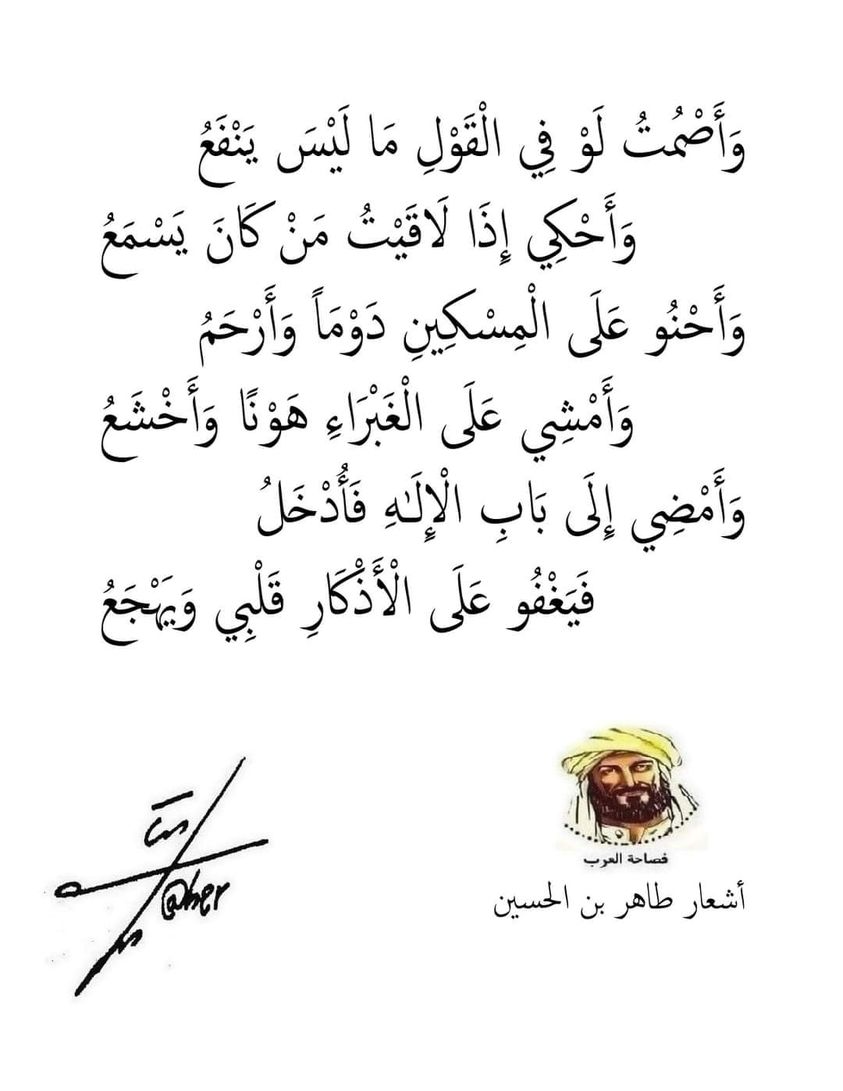 وَأَصْمُتُ لَوْ فِي الْقَوْلِ مَا لَيْسَ يَنْفَعُ
وَأَحْكِي إِذَا لَاقَيْتُ مَنْ كَانَ يَسْمَعُ
وَأَحْنُو عَلَى الْمِسْكِينِ دَوْمَاً وَأَرْحَمُ
وَأَمْشِي عَلَى الْغَبْرَاءِ هَوْنًا وَأَخْشَعُ
وَأَمْضِي إِلَى بَابِ الْإِلَٰهِ فَأُدْخَلُ
فَيَغْفُو عَلَى الْأَذْكَارِ قَلْبِي وَيَهْجَعُ
فصاحة العرب
أشعار طاهر بن الحسين